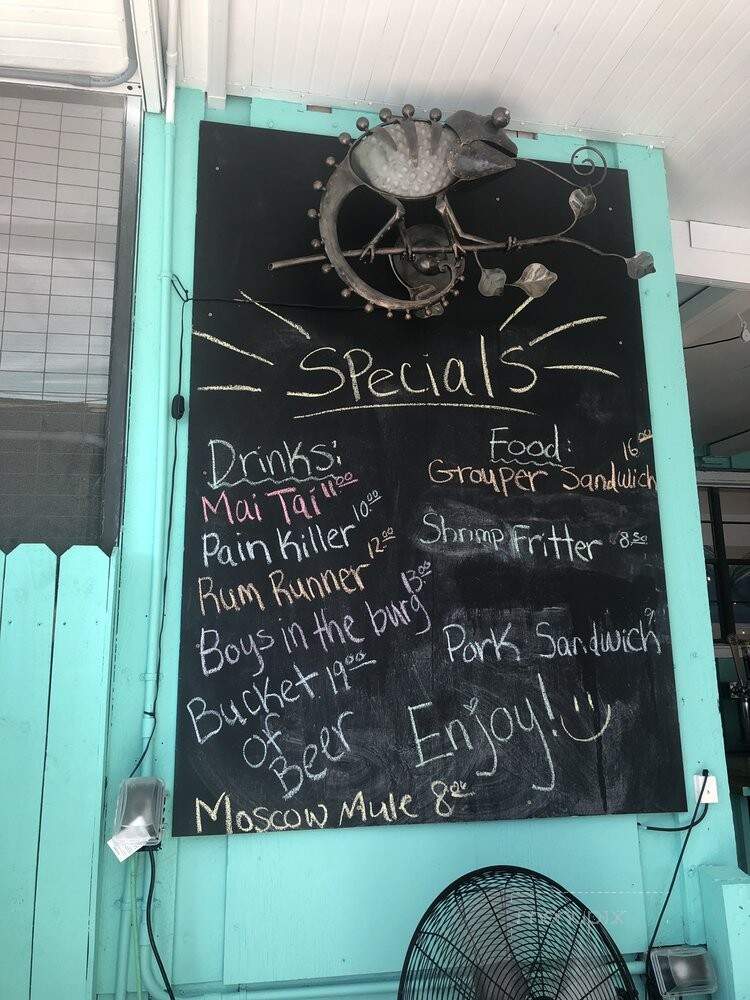 Specials
Drinks:
Mai Tai 11.00
Pain Killer 10.00
Rum Runner 12.00
Boys in the burg 13.00
Bucket 19.00
of
Beer
Moscow Mule 8.00
Food:
Grouper Sandwich 16.00
Shrimp Fritter 8.50
Pork Sandwich 9
Enjoy!